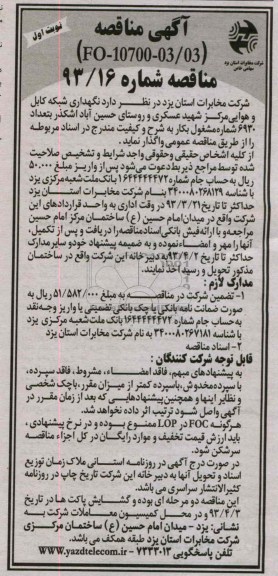 نوبت اول
شرکت مخابرات استان یزد
سهامی خاص
آگهی مناقصه
(FO-10700-03/03)
مناقصه شماره ۹۳/۱۶
شرکت مخابرات استان یزد در نظر دارد نگهداری شبکه کابل
و هوایی مرکز شهید عسکری و روستای حسین آباد اشکذر بتعداد
۶۹۳۰ شماره مشغول بکار به شرح و کیفیت مندرج در اسناد مربوطه
را از طریق مناقصه عمومی واگذار نماید.
از کلیه اشخاص حقیقی وحقوقی واجد شرایط و تشخیص صلاحیت
شده توسط مراجع ذیربط دعوت می شود پس از واریز مبلغ ۵۰.۰۰۰
ریال به حساب جام شماره ۱۶۴۴۴۴۴۴۷۲ بانک ملت شعبه مرکزی یزد
با شناسه ۳۴۰۰۰۸۰۲۶۸۱۲۹ بنام شرکت مخابرات استان یزد
حداکثر تا تاریخ ۹۳/۳/۲۱ در وقت اداری به واحد قراردادهای این
شرکت واقع در میدان امام حسین (ع) ساختمان مرکز امام حسین
مراجعه و با ارائه فیش بانکی اسناد مناقصه را دریافت و پس از تکمیل،
آنها را مهر و امضاء نموده و به ضمیمه پیشنهاد خود و سایر مدارک
حداکثر تا تاریخ ۹۳/۴/۲ به دبیر خانه این شرکت واقع در ساختمان
مذکور تحویل و رسید اخذ نمایند.
مدارک لازم :
۱- تضمین شرکت در مناقصه به مبلغ ۵۱/۵۸۲/۰۰۰ ریال به
صورت ضمانت نامه بانکی یا چک بانکی تضمینی یا واریز وجه نقد
به حساب جام شماره ۱۶۴۴۴۴۴۴۷۲ بانک ملت شعبه مرکزی یزد
با شناسه ۳۴۰۰۰۸۰۲۶۷۱۸۱ به نام شرکت مخابرات استان یزد
۲- اسناد مناقصه
قابل توجه شرکت کنندگان :
به پیشنهادهای مبهم، فاقد امضاء، مشروط، فاقد سپرده،
با سپرده مخدوش، باسپرده کمتر از میزان مقرر، باچک شخصی
و نظایر اینها و همچنین پیشنهادهایی که بعد از زمان مقرر در
آگهی واصل شود ترتیب اثر داده نخواهد شد.
هرگونه FOC در LOP ممنوع بوده و در نرخ پیشنهادی،
باید ارزش قیمت تخفیف و موارد رایگان در کل اجزاء مناقصه
سرشکن شود.
در صورت درج آگهی در روزنامه استانی ملاک زمان توزیع
اسناد و تحویل آنها به دبیر خانه این شرکت تاریخ چاپ در روزنامه
کثیرالانتشار سراسری می باشد.
این مناقصه دو مرحله ای بوده و گشایش پاکت ها در تاریخ
۹۳/۴/۳ و در محل کمیسیون معاملات شرکت به
نشانی: یزد - میدان امام حسین (ع) ساختمان مرکزی
شرکت مخابرات استان یزد طبقه همکف می باشد.
تلفن پاسخگویی ۷۲۳۳۰۱۳ www.yazdtelecom.ir